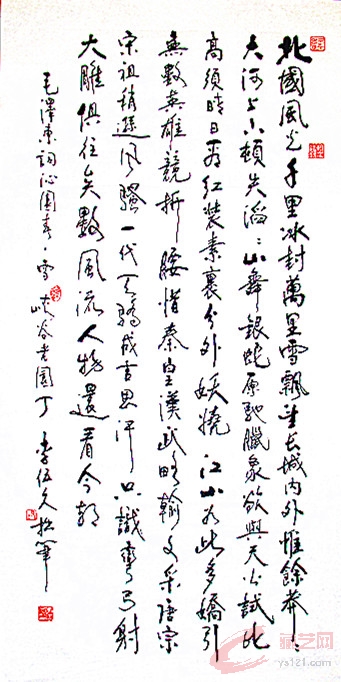 北國風光千里冰封萬里雪飄望長城內外惟餘莽〻
大河上下頓失滔〻山舞銀蛇原馳臘象欲與天公試比
高須晴日看紅裝素裹分外妖嬈江山如此多嬌引
無數英雄競折腰惜秦皇漢武略輸文采唐宗
宋祖稍遜風騷一代天驕成吉思汗只識彎弓射
大雕俱往矣數風流人物還看今朝
毛澤東詞沁園春·雪 峽谷老園丁 李伍久拙筆
藏艺网
ys121.com